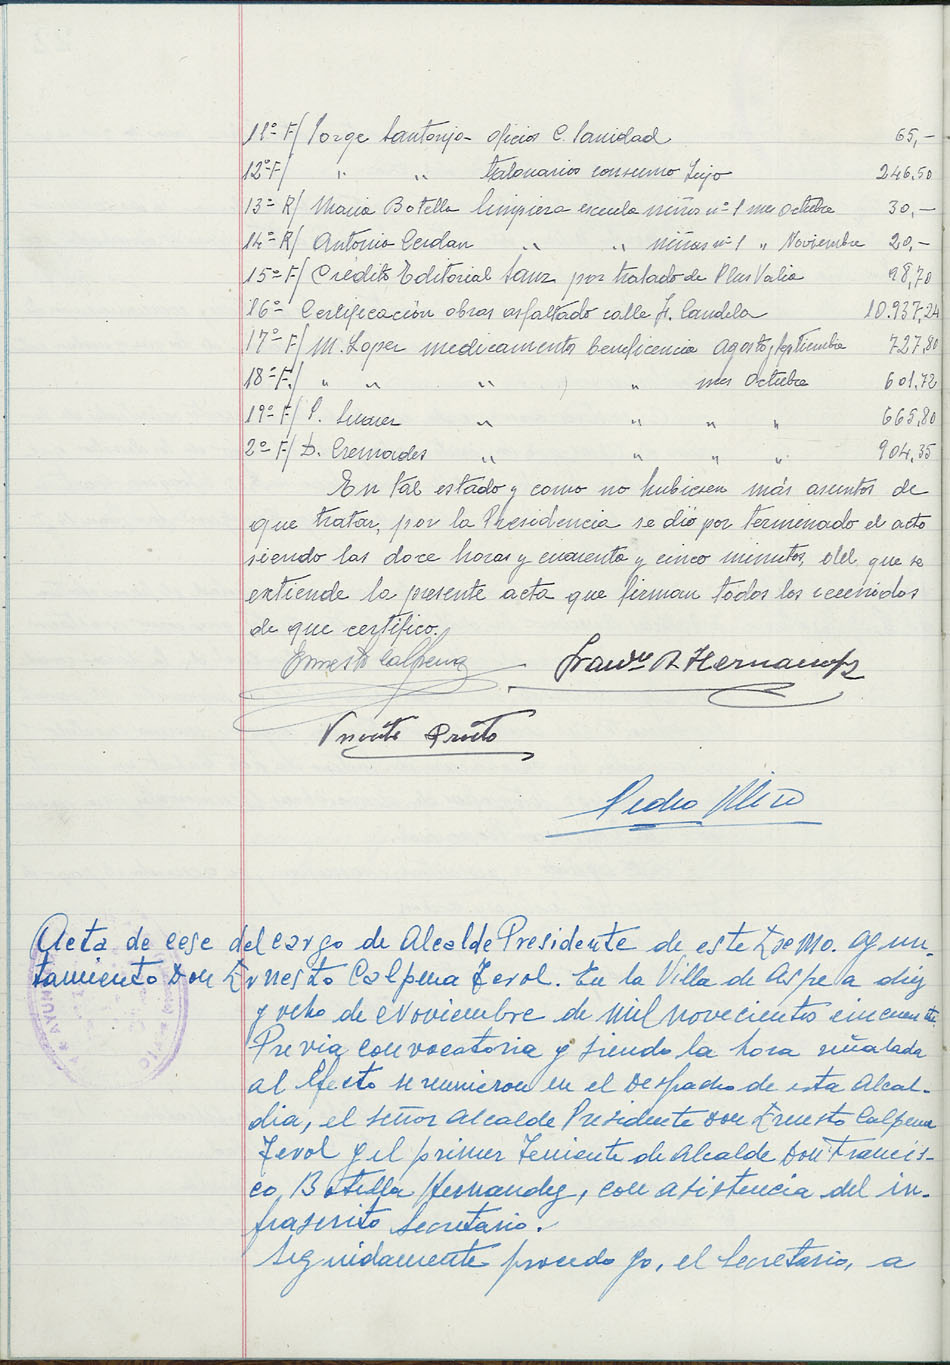 11º F/ Jorge Santonja - oficios C. Sanidad 65,-
12º F/ " " talonarios consumo lujo 246.50
13º R/ Maria Botella limpieza escuela niños nº 1 mes Octubre 30,-
14º R/ Antonia Cerdan " " niñas nº 1 " Noviembre 20,-
15º F/ Crédito Editorial Sanz por tratado de Plus Valia 98,70
16º Certificación obras asfaltado calle Fr. Candela 10.937,24
17º F/ M. Lopez medicamentos beneficencia Agosto y septiembre 727,80
18º F/ " " " " mes Octubre 601,72
19º F/ P. " " " " 665,80
2º F/ D. Cremades " " " " 904,35
En tal estado y como no hubiesen más asuntos de
que tratar, por la Presidencia se dió por terminado el acto
siendo las doce horas y cuarenta y cinco minutos, del que se
extiende la presente acta que firman todos los reunidos
de que certifico.
Ernesto Calpena
Franco B Hernandez
Vicente Prieto
Pedro Miro
Acta de cese del cargo de Alcalde Presidente de este Excmo. Ayun-
tamiento Don Ernesto Calpena Ferol. En la Villa de Aspe a diez
y ocho de Noviembre de mil novecientos cincuenta
Previa convocatoria y siendo la hora señalada
al efecto se reunieron en el Despacho de esta Alcal-
dia, el señor Alcalde Presidente Don Ernesto Calpena
Ferol y el primer Teniente de Alcalde Don Francis-
co Botella Hernandez, con asistencia del in-
frascrito Secretario.
Seguidamente procedo yo, el Secretario, a